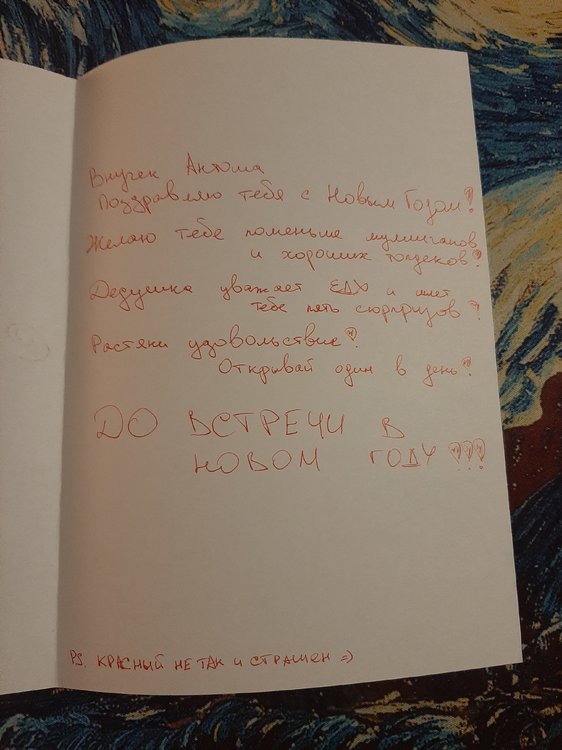 Внучек Антоша
Поздравляю тебя с Новым Годом!
Желаю тебе поменьше муллиганов
и хороших топдеков!
Дедушка уважает ЕДХ и шлет
тебе пять сюрпризов!
Растяни удовольствие!
Открывай один в день!
ДО ВСТРЕЧИ В
НОВОМ ГОДУ!!!
PS. КРАСНЫЙ НЕ ТАК И СТРАШЕН =)